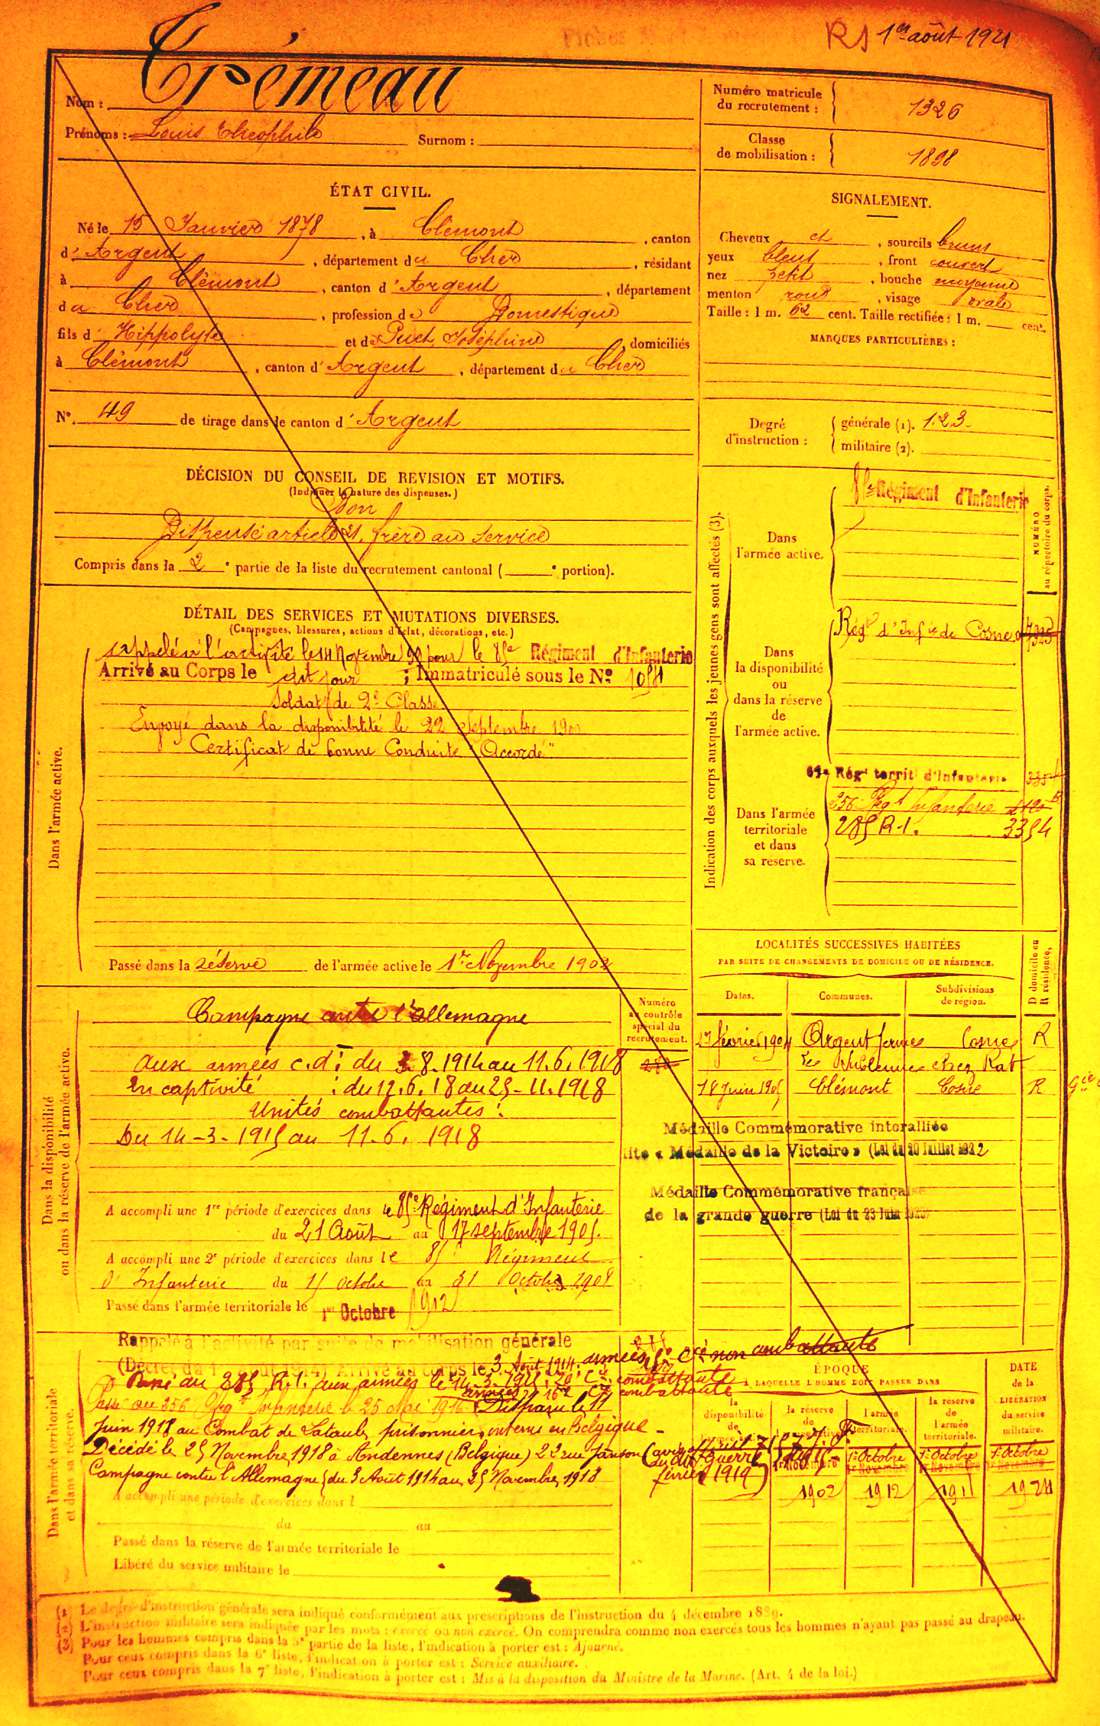 RJ 1er août 1921
Nom : Trémeau
Prénoms : Louis Théophile Surnom :
Numéro matricule du recrutement : 1326
Classe de mobilisation : 1898
ÉTAT CIVIL.
Né le 15 Janvier 1878, à Clémont, canton
d' Argent, département du Cher, résidant
à Clémont, canton d' Argent, département
du Cher, profession de Domestique
fils d' Hippolyte et de Joséphine, domiciliés
à Clémont, canton d' Argent, département du Cher
N° 49 de tirage dans le canton d' Argent
SIGNALEMENT.
Cheveux et, sourcils bruns
yeux bleus, front couvert
nez petit, bouche moyenne
menton rond, visage ovale
Taille : 1 m. 62 cent. Taille rectifiée : 1 m. cent.
MARQUES PARTICULIÈRES :
Degré d'instruction : générale (1). 1.2.3.
militaire (2).
DÉCISION DU CONSEIL DE REVISION ET MOTIFS.
(Indiquer la nature des dispenses.)
Bon
Dispensé article 21, frère au service
Compris dans la 2e partie de la liste du recrutement cantonal ( e portion).
DÉTAIL DES SERVICES ET MUTATIONS DIVERSES.
(Campagnes, blessures, actions d'éclat, décorations, etc.)
Dans l'armée active.
Appelé à l'activité le 14 Novembre 99 pour le 85e Régiment d'Infanterie
Arrivé au Corps le dit jour ; Immatriculé sous le N° 1054
Soldat de 2e Classe
Envoyé dans la disponibilité le 22 Septembre 1900
Certificat de bonne Conduite "Accordé"
Passé dans la réserve de l'armée active le 1er Novembre 1902
Indication des corps auxquels les jeunes gens sont affectés (3).
NUMÉRO au répertoire du corps.
Dans l'armée active.
85e Régiment d'Infanterie
Dans la disponibilité ou dans la réserve de l'armée active.
Régt d'Infie de Cosne
Dans l'armée territoriale et dans sa réserve.
Régt territl d'Infanterie
356 Régt Infanterie
285 R.I. 3354
LOCALITÉS SUCCESSIVES HABITÉES
PAR SUITE DE CHANGEMENTS DE DOMICILE OU DE RÉSIDENCE.
Dates. Communes. Subdivisions de région. D domicile ou R résidence.
27 février 1904 Argent Cosne R
18 Juin 1905 Clémont Cosne R
Dans la disponibilité ou dans la réserve de l'armée active.
Numéro au contrôle spécial du recrutement.
Campagne contre l'Allemagne
aux armées c.d : du 3.8.1914 au 11.6.1918
En captivité : du 12.6.18 au 25-11.1918
Unités combattantes :
Du 14-3-1915 au 11.6.1918
Médaille Commémorative interalliée
dite « Médaille de la Victoire » (Loi du 20 Juillet 1922
Médaille Commémorative française
de la grande guerre (Loi du 23 Juin 1920)
A accompli une 1re période d'exercices dans le 85e Régiment d'Infanterie
du 21 Août au 17 septembre 1905.
A accompli une 2e période d'exercices dans le 85e Régiment
d'Infanterie du 15 octobre au 31 octobre 1908
Passé dans l'armée territoriale le 1er Octobre 1912
Dans l'armée territoriale et dans sa réserve.
Rappelé à l'activité par suite de mobilisation générale
(Décret du 1er août 1914) Arrivé au corps le 3 Août 1914. armées Cie non combattante
Passé au 285 R.I. aux armées le 14-3-1915
Passé au 356 Régt Infanterie le 25 Mai 1916 Disparu le 11
Juin 1918 au Combat de Lataule, prisonnier, interné en Belgique
Décédé le 25 Novembre 1918 à Andennes (Belgique) 22 rue Janson
Campagne contre l'Allemagne du 3 Août 1914 au 25 Novembre 1918
février 1919
A accompli une période d'exercices dans l
du au
Passé dans la réserve de l'armée territoriale le
Libéré du service militaire le
ÉPOQUE
À LAQUELLE L'HOMME DOIT PASSER DANS
la disponibilité
la réserve de l'armée active.
l'armée territoriale.
la réserve de l'armée territoriale.
DATE de la LIBÉRATION du service militaire.
1er Novembre 1er Octobre 1er Octobre 1er Octobre
1902 1912 1924
(1) Le degré d'instruction générale sera indiqué conformément aux prescriptions de l'instruction du 4 décembre 1889.
(2) L'instruction militaire sera indiquée par les mots : exercé ou non exercé. On comprendra comme non exercés tous les hommes n'ayant pas passé au drapeau.
(3) Pour les hommes compris dans la 5e partie de la liste, l'indication à porter est : Ajourné.
Pour ceux compris dans la 6e liste, l'indication à porter est : Service auxiliaire.
Pour ceux compris dans la 7e liste, l'indication à porter est : Mis à la disposition du Ministre de la Marine. (Art. 4 de la loi.)